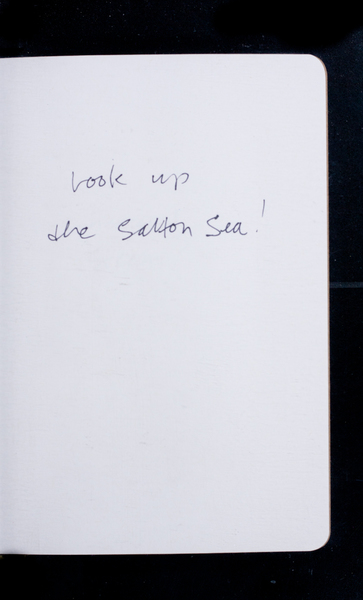 Look up
the Salton Sea!